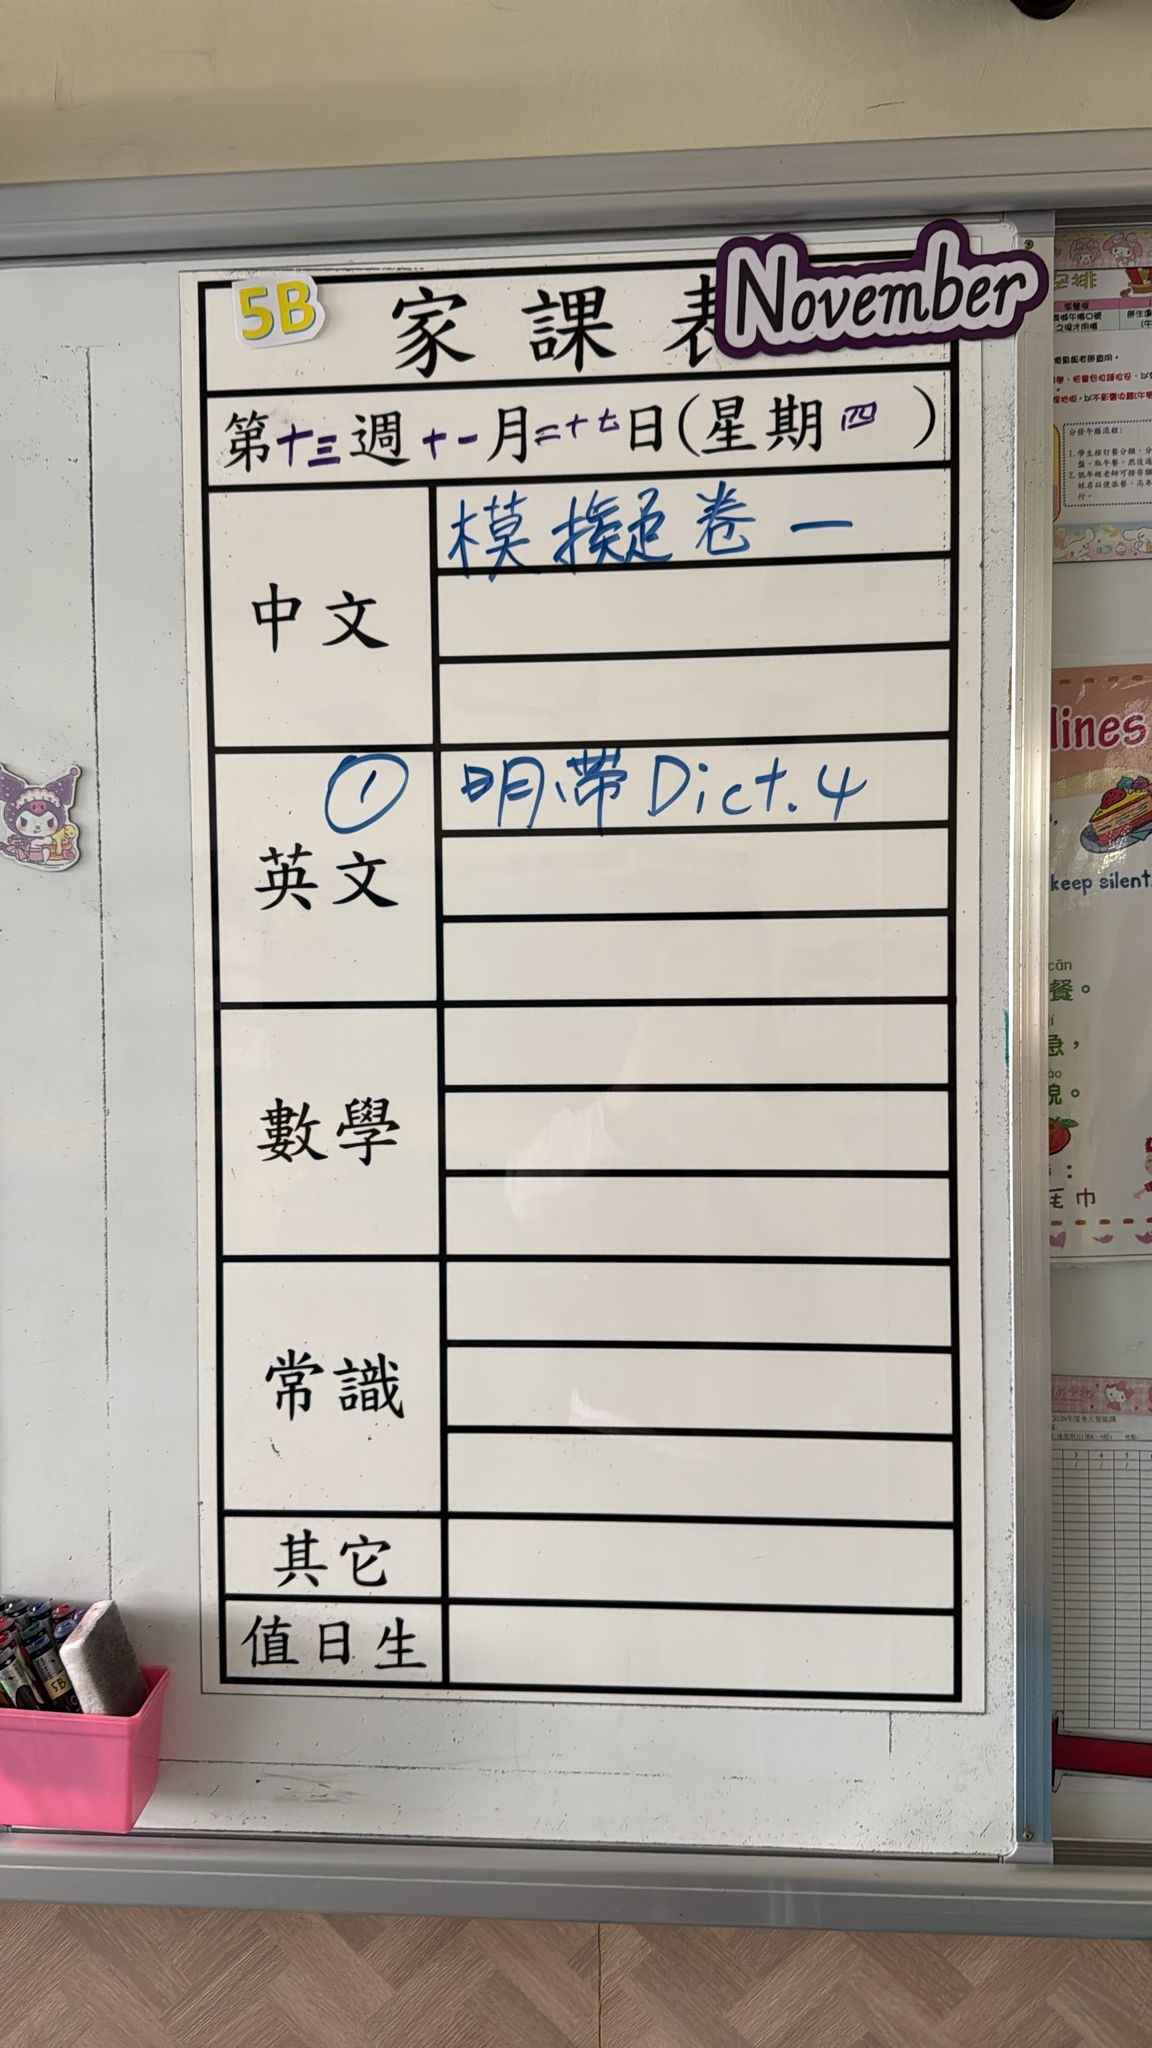 5B 家課表 November
第十三週十一月二十七日(星期四)
中文
模擬卷一
英文
① 明帶 Dict. 4
數學
常識
其它
值日生
lines
keep silent.
cān
餐。
急，
貌。
毛巾
分發午膳流程:
5B